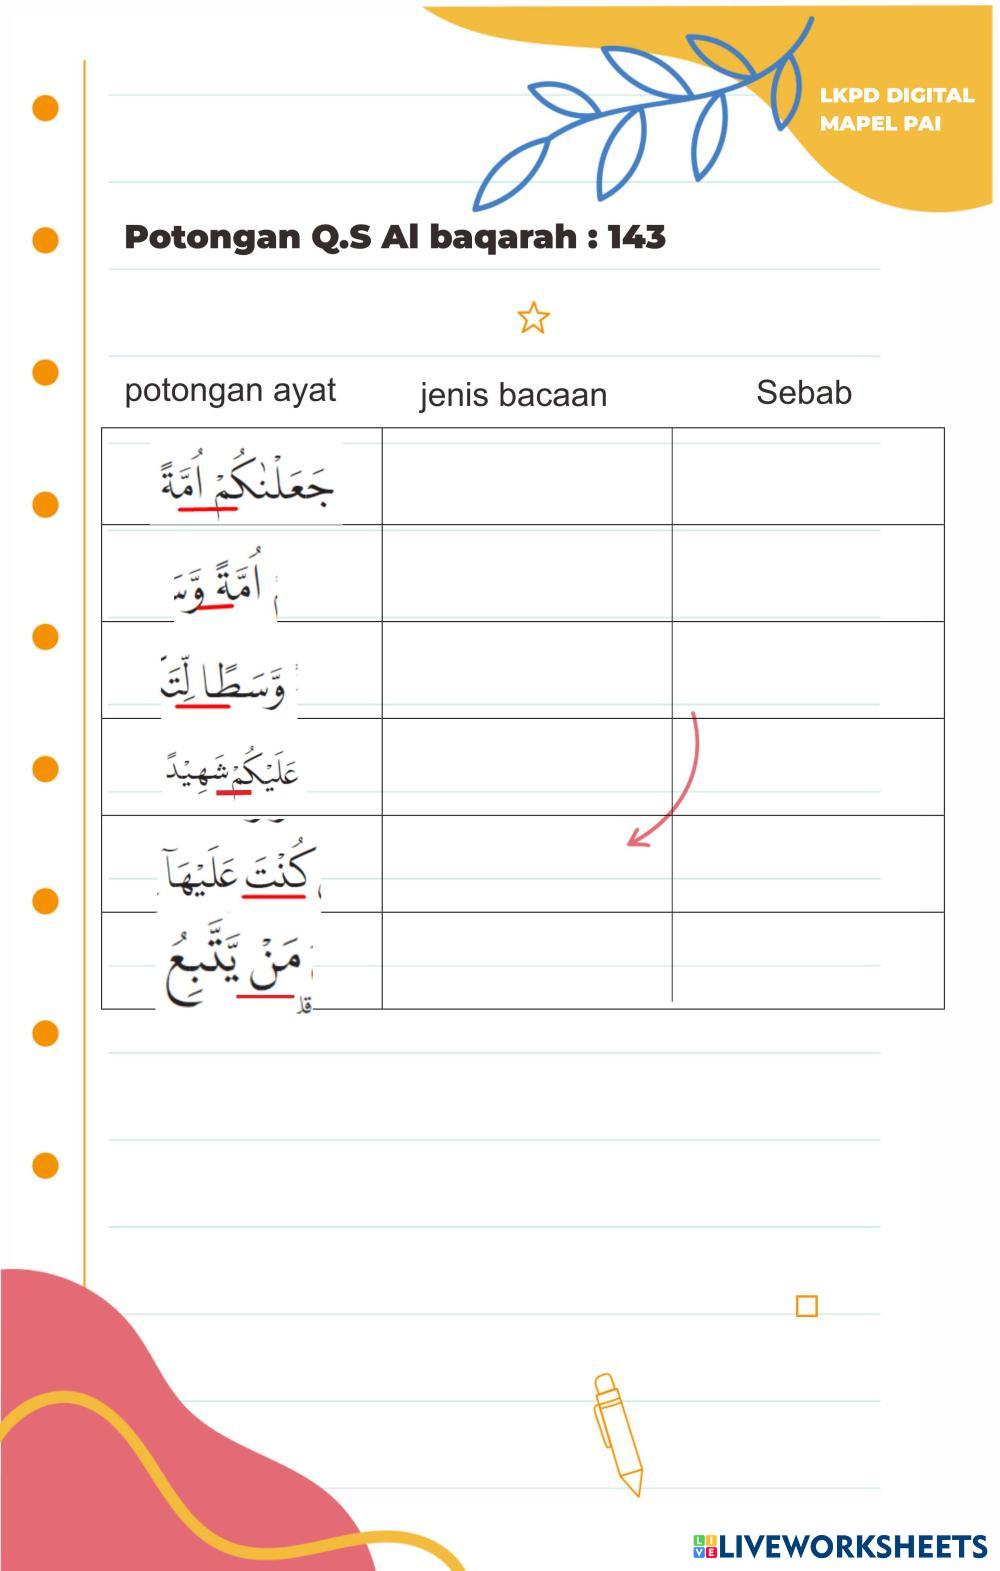 LKPD DIGITAL
MAPEL PAI
Potongan Q.S Al baqarah : 143
potongan ayat jenis bacaan Sebab
جَعَلْنٰكُمْ اُمَّةً
اُمَّةً وَّسَ
وَّسَطًا لِّتَ
عَلَيْكُمْ شَهِيْدً
كُنْتَ عَلَيْهَآ
مَنْ يَّتَّبِعُ
LIVEWORKSHEETS